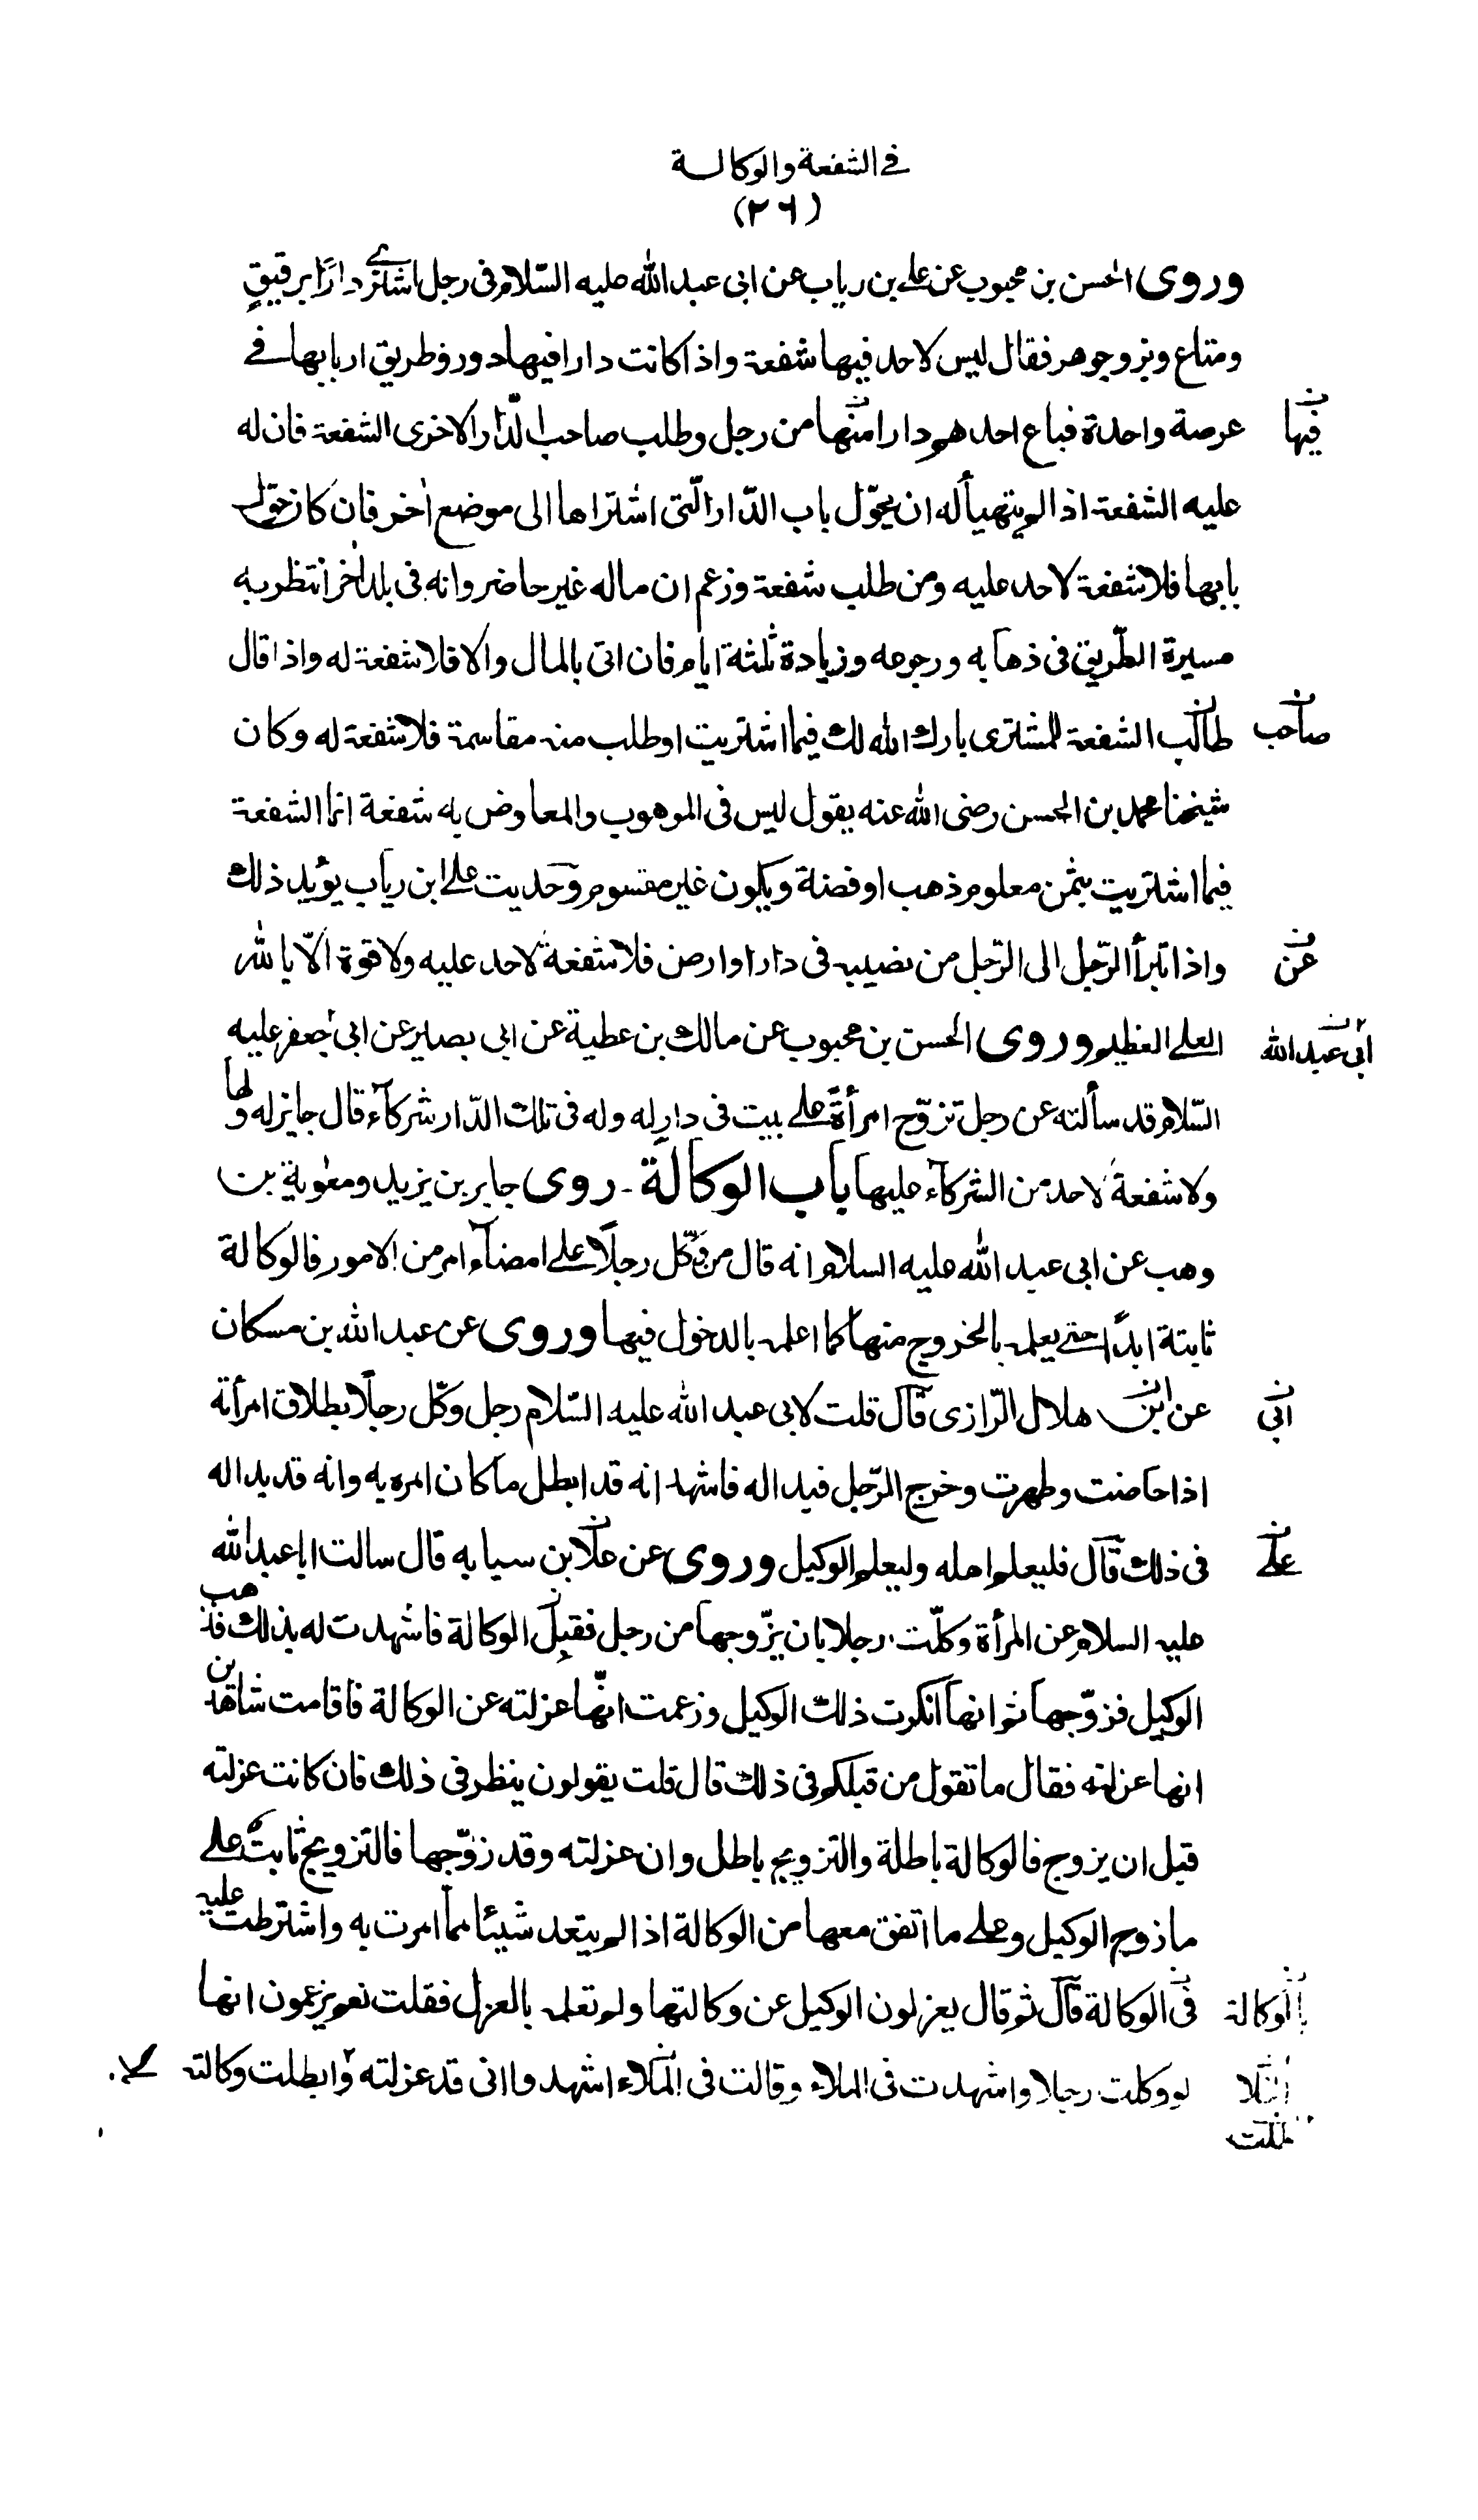 في الشفعة والوكالة
(٢٦)
وروى الحسن بن محبوب عن علي بن رياب عن ابى عبد الله عليه السّلام فى رجل اشترى دارًا برقيقٍ
ومتاع وبز وجوهر فقال ليس لاحد فيها شفعة واذا كانت دارا فيها دور وطريق اربابها في
عرصة واحدة فباع احدهم دارا منها من رجل وطلب صاحب الدّار الاخرى الشفعة فان له
فيها
عليه الشفعة اذا لم يتهيأ له ان يحوّل باب الدّار الّتى اشتراها الى موضع اٰخر فان كان حوّل
بابها فلا شفعة لاحد عليه ومن طلب شفعة وزعم ان ماله غير حاضر وانه فى بلد اٰخر انتظر به
مسيرة الطّريق فى ذهابه ورجوعه وزيادة ثلٰثة ايام فان اتى بالمال والا فلا شفعة له واذا قال
طالب الشفعة للمشترى بارك الله لك فيما اشتريت او طلب منه مقاسمة فلا شفعة له وكان
صاحب
شيخنا محمد بن الحسن رضى الله عنه يقول ليس فى الموهوب والمعاوض به شفعة انما الشفعة
فيما اشتريت بثمن معلوم ذهب او فضة ويكون غير مقسوم وحديث علي ابن رياب يؤيد ذلك
واذا تبرأ الرّجل الى الرّجل من نصيبه فى دار او ارض فلا شفعة لاحد عليه ولا قوة الّا بالله
عن
العلي العظيم وروى الحسن بن محبوب عن مالك بن عطية عن ابى بصير عن ابى جعفر عليه
ابى عبد الله
السّلام قد سألته عن رجل تزوّج امرأةً علي بيت فى دار له وله فى تلك الدّار شركاء قال جايز له ولها
ولا شفعة لاحد من الشركاء عليها باب الوكالة - روى جابر بن يزيد ومعٰوية بن
وهب عن ابى عبد الله عليه السلام انه قال من وكّل رجلًا علي امضاء امر من الامور فالوكالة
ثابتة ابدًا حتي يعلمه بالخروج منها كما اعلمه بالدخول فيها وروى عن عبد الله بن مسكان
عن ابن هلال الرّازى قال قلت لابى عبد الله عليه السّلام رجل وكّل رجلًا بطلاق امرأته
ابى
اذا حاضت وطهرت وخرج الرّجل فبدا له فاشهد انه قد ابطل ما كان امره به وانه قد بدا له
فى ذلك قال فليعلم اهله وليعلم الوكيل وروى عن علا بن سيابه قال سالت ابا عبد الله
علي
عليه السلام عن المرأة وكلّت رجلا بان يزّوجها من رجل فقبل الوكالة فاشهدت له بذلك فذهب
الوكيل فزوّجها ثم انها انكرت ذلك الوكيل وزعمت انّها عزلته عن الوكالة فاقامت شاهدين
انها عزلته فقال ما تقول من قبلكم فى ذلك قال قلت يقولون ينظر فى ذلك فان كانت عزلته
قبل ان يزوج فالوكالة باطلة والتزويج باطل وان عزلته وقد زوّجها فالتزويج ثابت علي
ما زوج الوكيل وعلي ما اتفق معها من الوكالة اذا لم يتعد شيئا مما امرت به واشترطت عليه
فى الوكالة قال ثم قال يعزلون الوكيل عن وكالتها ولم تعلمه بالعزل فقلت نعم يزعمون انها
بالوكالة
لو وكلت رجلا واشهدت فى الملاء وقالت فى الملاء اشهدوا انى قد عزلته وابطلت وكالته